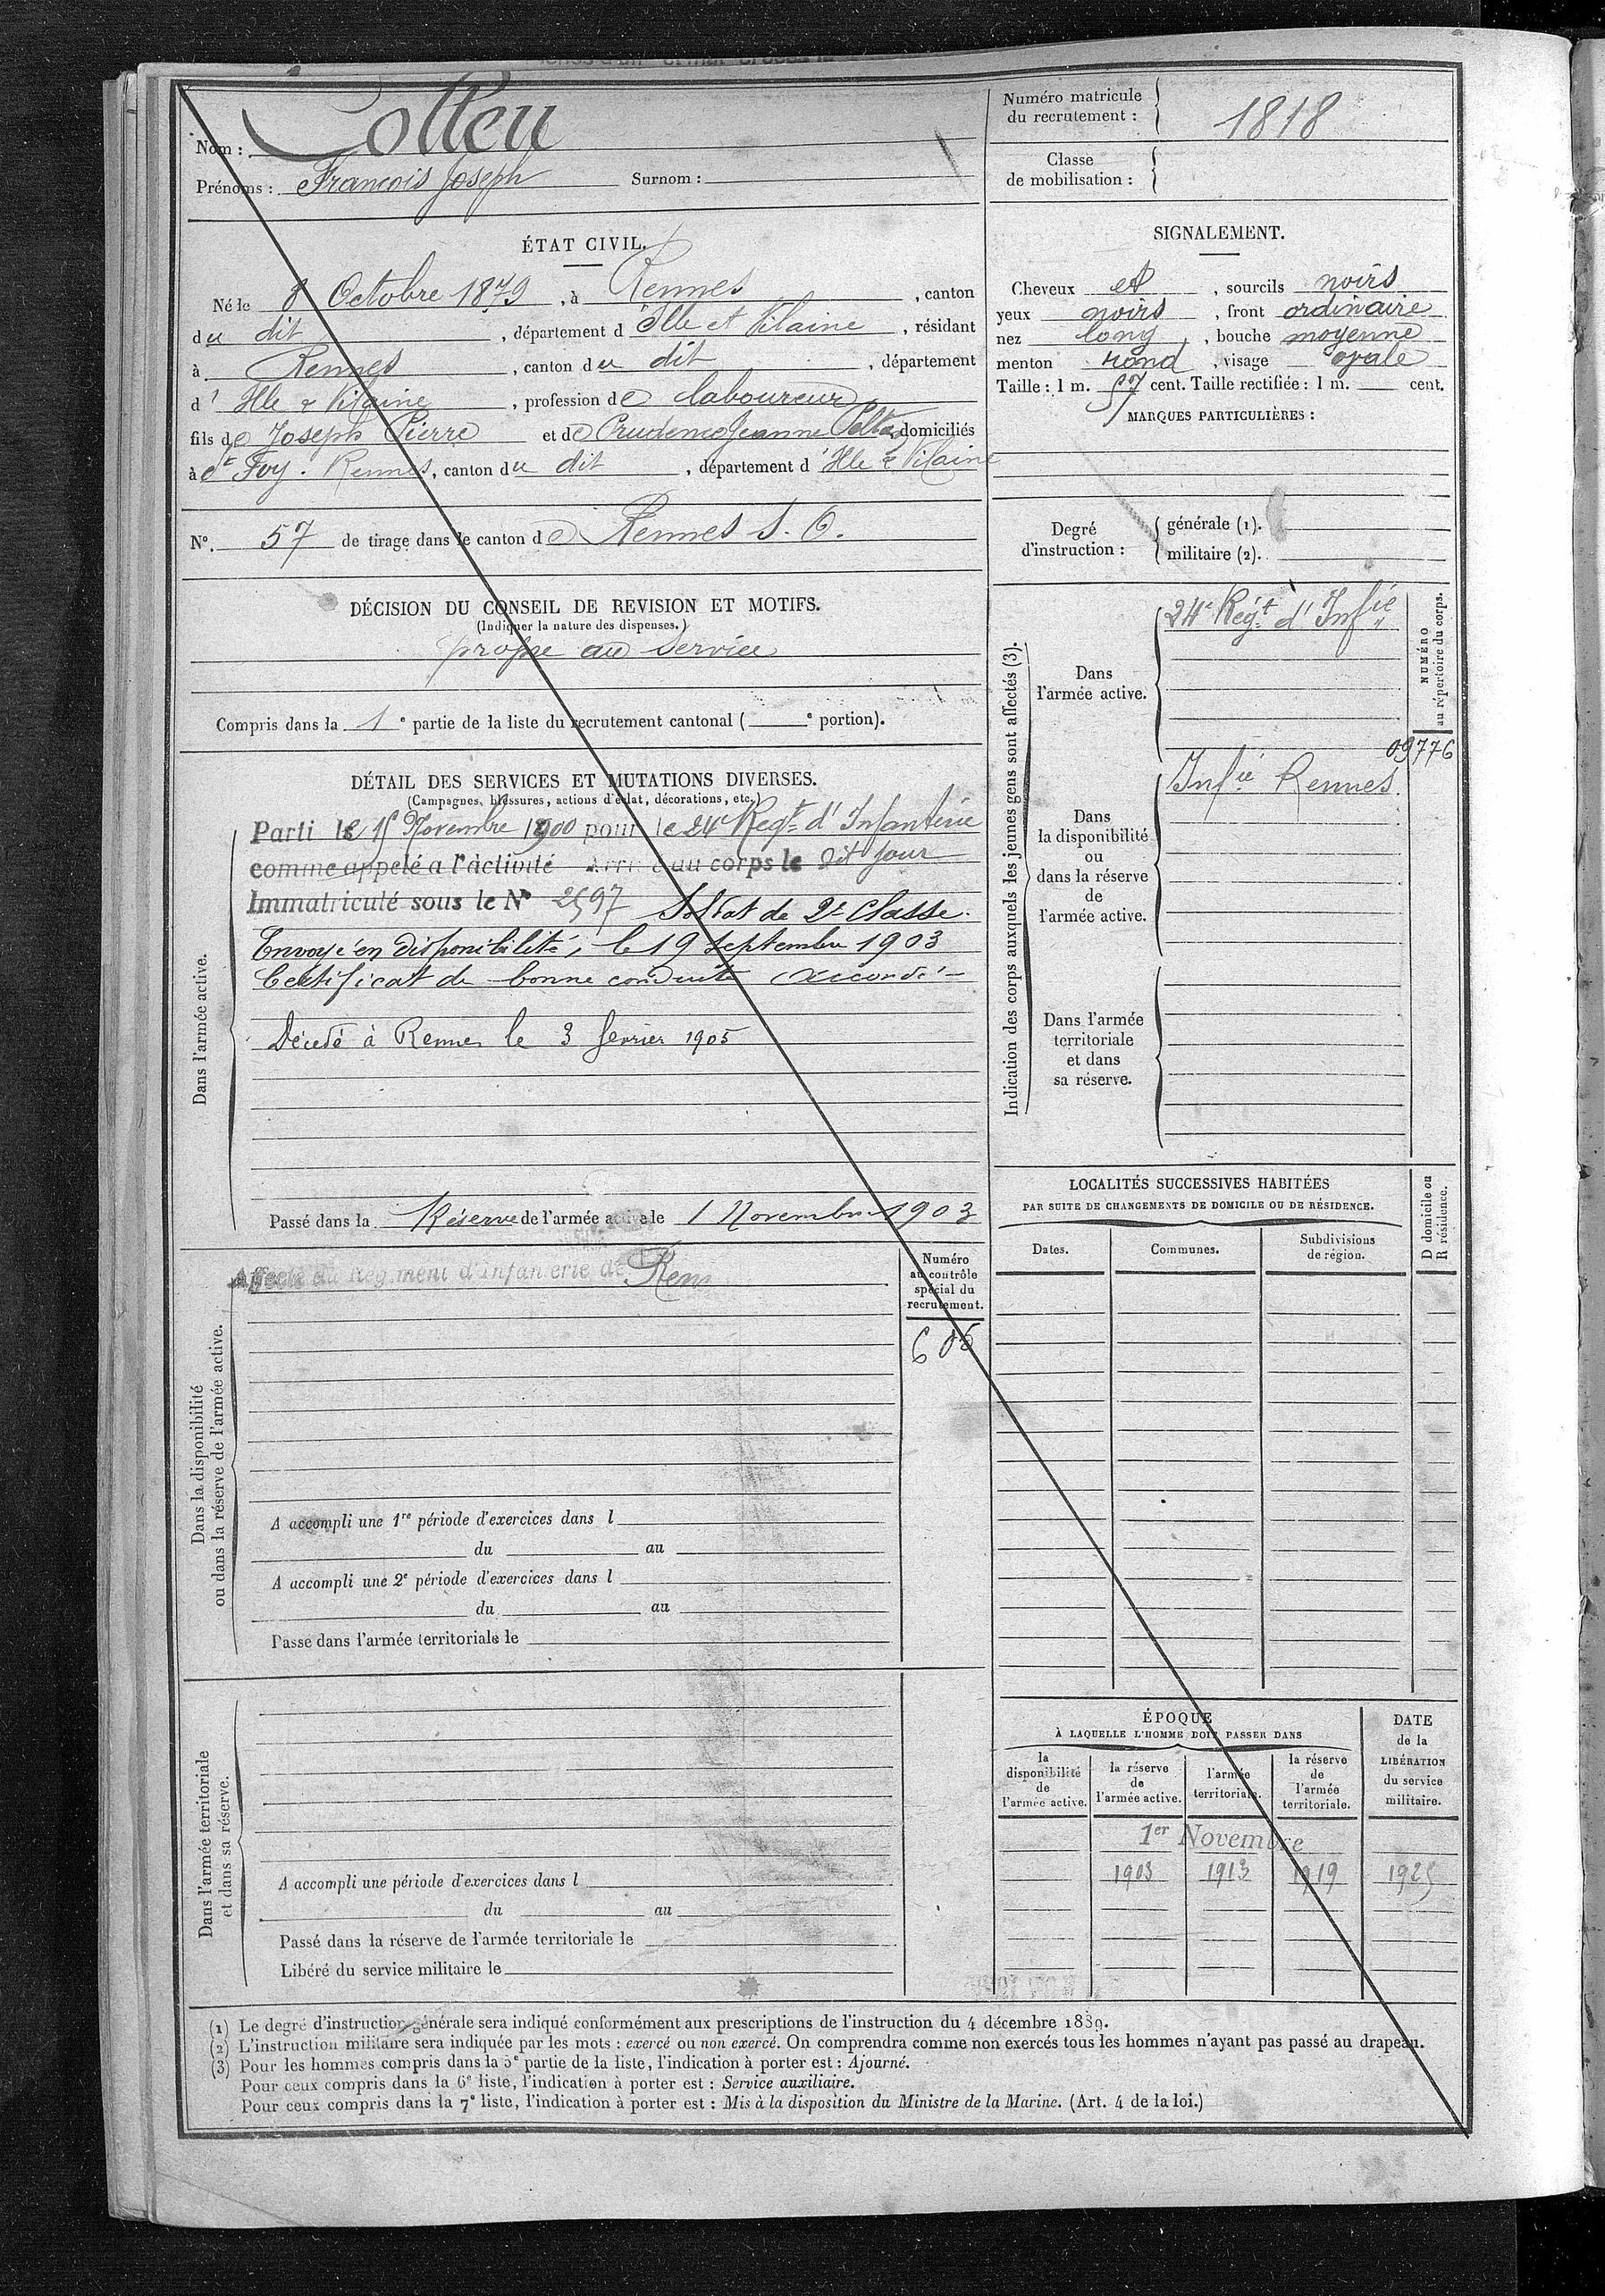 Nom : Colleu
Prénoms : François Joseph Surnom :
Numéro matricule du recrutement : 1818
Classe de mobilisation :
ÉTAT CIVIL.
Né le 8 Octobre 1879, à Rennes, canton
du dit, département d'Ille et Vilaine, résidant
à Rennes, canton du dit, département
d'Ille & Vilaine, profession de laboureur
fils de Joseph Pierre et de Prudence Jeanne domiciliés
à St Foy. Rennes, canton du dit, département d'Ille & Vilaine
N°. 57 de tirage dans le canton de Rennes S. O.
DÉCISION DU CONSEIL DE REVISION ET MOTIFS.
(Indiquer la nature des dispenses.)
propre au service
Compris dans la 1e partie de la liste du recrutement cantonal ( e portion).
SIGNALEMENT.
Cheveux et, sourcils noirs
yeux noirs, front ordinaire
nez long, bouche moyenne
menton rond, visage ovale
Taille : 1 m. 57 cent. Taille rectifiée : 1 m. cent.
MARQUES PARTICULIÈRES :
Degré d'instruction : générale (1).
militaire (2).
DÉTAIL DES SERVICES ET MUTATIONS DIVERSES.
(Campagnes, blessures, actions d'éclat, décorations, etc.)
Dans l'armée active.
Parti le 15 Novembre 1900 pour le 24e Régt d'Infanterie
comme appelé a l'activité Arrivé au corps le dit jour
Immatriculé sous le N° 2597 Soldat de 2e Classe.
Envoyé en disponibilité, le 19 Septembre 1903
Certificat de bonne conduite accordé
Décédé à Rennes le 3 février 1905
Passé dans la Réserve de l'armée active le 1 Novembre 1903
Dans la disponibilité
ou dans la réserve de l'armée active.
Affecté au Régiment d'Infanterie de
Numéro
au contrôle
spécial du
recrutement.
A accompli une 1re période d'exercices dans l
du au
A accompli une 2e période d'exercices dans l
du au
Passé dans l'armée territoriale le
Dans l'armée territoriale
et dans sa réserve.
A accompli une période d'exercices dans l
du au
Passé dans la réserve de l'armée territoriale le
Libéré du service militaire le
Indication des corps auxquels les jeunes gens sont affectés (3).
Dans
l'armée active.
24e Régt d'Infie
NUMÉRO
au répertoire du corps.
09776
Dans
la disponibilité
ou
dans la réserve
de
l'armée active.
Infie Rennes.
Dans l'armée
territoriale
et dans
sa réserve.
LOCALITÉS SUCCESSIVES HABITÉES
PAR SUITE DE CHANGEMENTS DE DOMICILE OU DE RÉSIDENCE.
Dates. Communes. Subdivisions de région.
D domicile ou
R résidence.
ÉPOQUE
À LAQUELLE L'HOMME DOIT PASSER DANS
la disponibilité de l'armée active.
la réserve de l'armée active.
l'armée territoriale.
la réserve de l'armée territoriale.
DATE de la LIBÉRATION du service militaire.
1er Novembre
1903 1913 1919 1925
(1) Le degré d'instruction générale sera indiqué conformément aux prescriptions de l'instruction du 4 décembre 1889.
(2) L'instruction militaire sera indiquée par les mots : exercé ou non exercé. On comprendra comme non exercés tous les hommes n'ayant pas passé au drapeau.
(3) Pour les hommes compris dans la 5e partie de la liste, l'indication à porter est : Ajourné.
Pour ceux compris dans la 6e liste, l'indication à porter est : Service auxiliaire.
Pour ceux compris dans la 7e liste, l'indication à porter est : Mis à la disposition du Ministre de la Marine. (Art. 4 de la loi.)